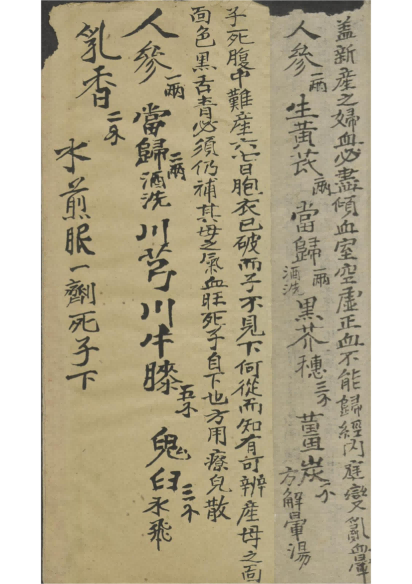 盖新産之婦血必盡傾血室空虛正血不能歸經內庭變亂血暈
人參一兩生黃芪一兩當歸一兩酒洗黑芥穗三錢薑炭一錢方解暈湯
子死腹中難産六七日胞衣已破而子不見下何從而知有可辨産母之面
面色黑舌青必須仍補其母之氣血旺死子自下也方用療兒散
人參一兩當歸二兩酒洗川芎川牛膝五錢鬼臼三錢水飛
乳香二錢
水煎眠一劑死子下